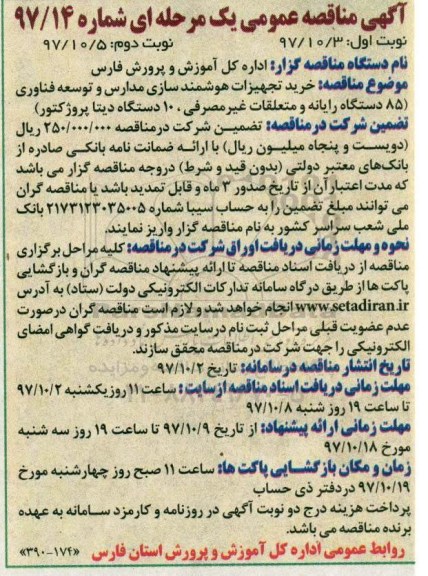 آگهی مناقصه عمومی یک مرحله ای شماره ۹۷/۱۴
نوبت اول: ۹۷/۱۰/۳ نوبت دوم: ۹۷/۱۰/۵
نام دستگاه مناقصه گزار: اداره کل آموزش و پرورش فارس
موضوع مناقصه: خرید تجهیزات هوشمندسازی مدارس و توسعه فناوری
(۸۵ دستگاه رایانه و متعلقات غیرمصرفی، ۱۰ دستگاه دیتا پروژکتور)
تضمین شرکت در مناقصه: تضمین شرکت در مناقصه ۲۵۰/۰۰۰/۰۰۰ ریال
(دویست و پنجاه میلیون ریال) با ارائه ضمانت نامه بانکی صادره از
بانک‌های معتبر دولتی (بدون قید و شرط) دروجه مناقصه گزار می باشد
که مدت اعتبار آن از تاریخ صدور ۳ ماه و قابل تمدید باشد یا مناقصه گران
می توانند مبلغ تضمین را به حساب سیبا شماره ۲۱۷۳۱۲۳۰۳۵۰۰۵ بانک
ملی شعب سراسر کشور به نام مناقصه گزار واریز نمایند.
نحوه و مهلت زمانی دریافت اوراق شرکت در مناقصه: کلیه مراحل برگزاری
مناقصه از دریافت اسناد مناقصه تا ارائه پیشنهاد مناقصه گران و بازگشایی
پاکت ها از طریق درگاه سامانه تدارکات الکترونیکی دولت (ستاد) به آدرس
www.setadiran.ir انجام خواهد شد و لازم است مناقصه گران درصورت
عدم عضویت قبلی مراحل ثبت نام درسایت مذکور و دریافت گواهی امضای
الکترونیکی را جهت شرکت در مناقصه محقق سازند.
تاریخ انتشار مناقصه در سامانه: تاریخ ۹۷/۱۰/۲
مهلت زمانی دریافت اسناد مناقصه از سایت: ساعت ۱۱ روز یکشنبه ۹۷/۱۰/۲
تا ساعت ۱۹ روز شنبه ۹۷/۱۰/۸
مهلت زمانی ارائه پیشنهاد: از تاریخ ۹۷/۱۰/۹ تا ساعت ۱۹ روز سه شنبه
مورخ ۹۷/۱۰/۱۸
زمان و مکان بازگشایی پاکت ها: ساعت ۱۱ صبح روز چهارشنبه مورخ
۹۷/۱۰/۱۹ دردفتر ذی حساب
پرداخت هزینه درج دو نوبت آگهی در روزنامه و کارمزد سامانه به عهده
برنده مناقصه می باشد.
روابط عمومی اداره کل آموزش و پرورش استان فارس «۳۹۰-۱۷۴»